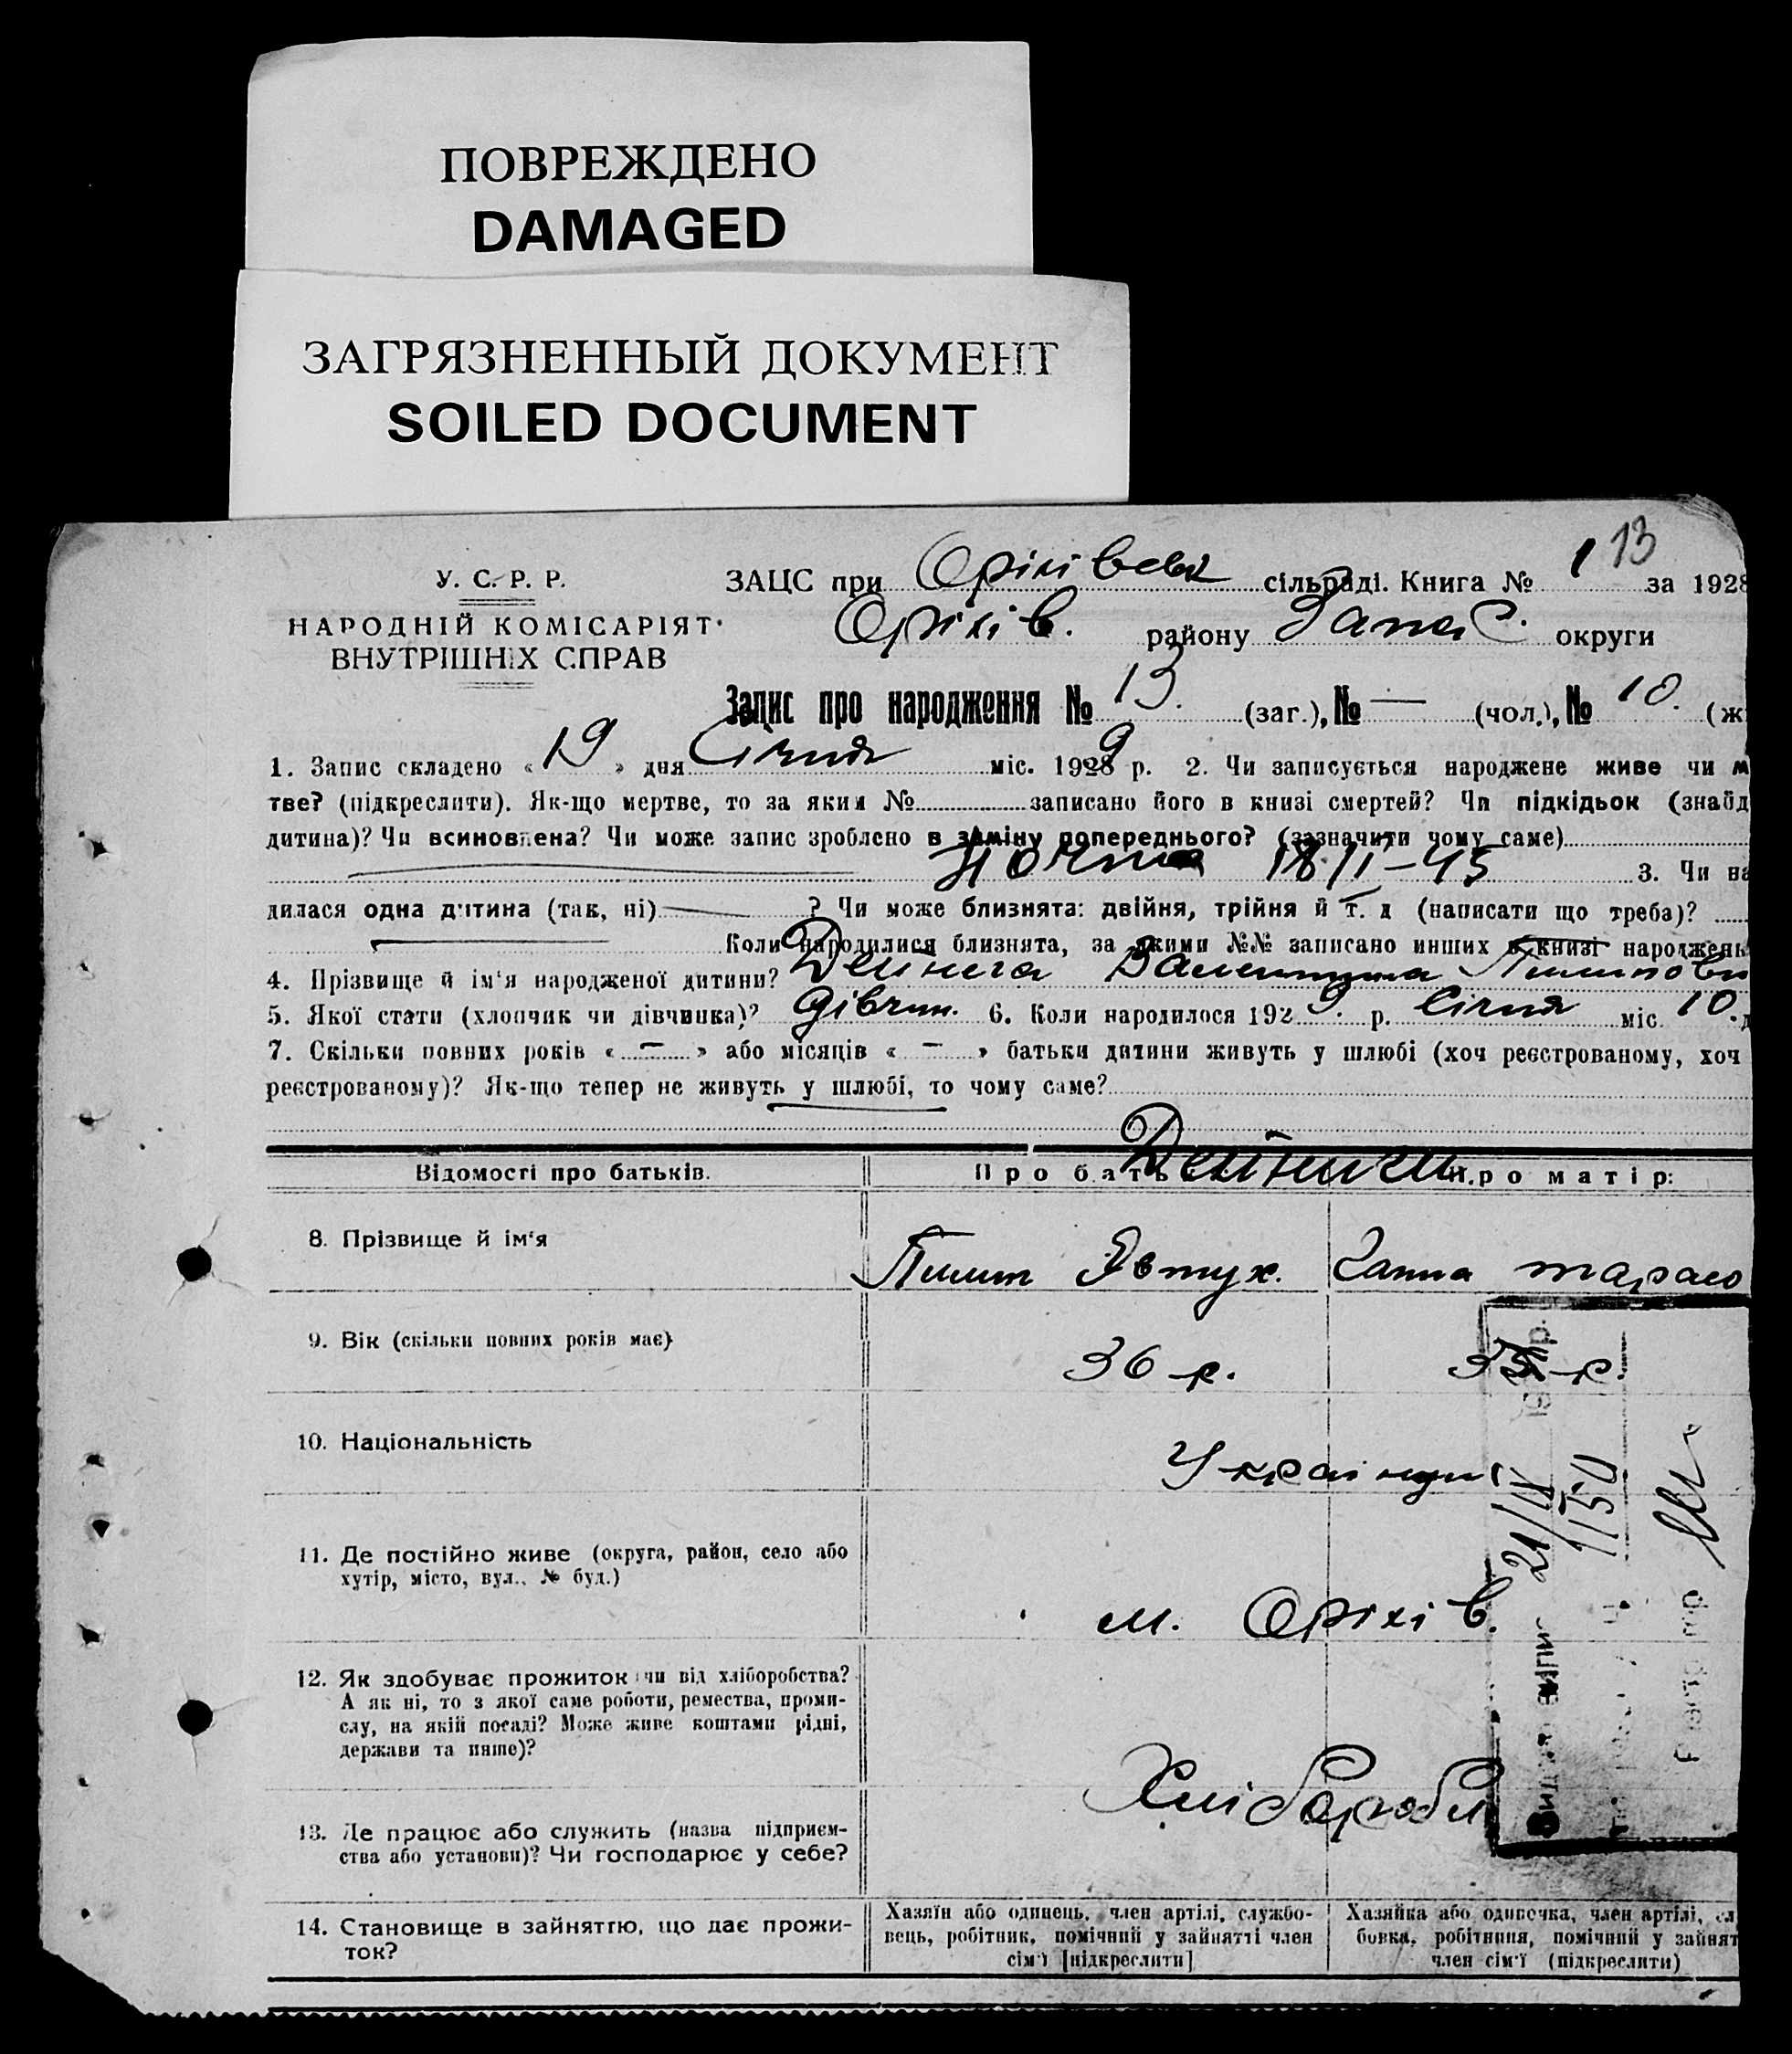 ПОВРЕЖДЕНО
DAMAGED
ЗАГРЯЗНЕННЫЙ ДОКУМЕНТ
SOILED DOCUMENT
13
У. С. Р. Р.
НАРОДНІЙ КОМІСАРІЯТ
ВНУТРІШНІХ СПРАВ
ЗАЦС при Оріхівськ сільраді. Книга № 1 за 1928
Оріхів. району Запор. округи
Запис про народження № 13. (заг.), № — (чол.), № 10. (ж
1. Запис складено « 19 » дня Січня міс. 1929 р. 2. Чи записується народжене живе чи м
тве? (підкреслити). Як-що мертве, то за яким № записано його в книзі смертей? Чи підкідьок (знайд
дитина)? Чи всиновлена? Чи може запис зроблено в заміну попереднього? (зазначити чому саме)
18/I-45 3. Чи на
дилася одна дитина (так, ні) ? Чи може близнята: двійня, трійня й т. д (написати що треба)?
Коли народилися близнята, за якими №№ записано инших в книзі народжень
4. Прізвище й ім'я народженої дитини? Дейнега Валентина Пилиповн
5. Якої стати (хлопчик чи дівчинка)? дівчин. 6. Коли народилося 1929. р. Січня міс. 10. д
7. Скільки повних років « — » або місяців « — » батьки дитини живуть у шлюбі (хоч реєстрованому, хоч
реєстрованому)? Як-що тепер не живуть у шлюбі, то чому саме?
Відомості про батьків. Про бать Дейнеги Про матір:
8. Прізвище й ім'я Пилип Явтух. Ганна Тарасо
9. Вік (скільки повних років має) 36 р. р.
10. Національність Українці
21/IX
1150
11. Де постійно живе (округа, район, село або
хутір, місто, вул., № буд.)
м. Оріхів.
12. Як здобуває прожиток чи від хліборобства?
А як ні, то з якої саме роботи, ремества, проми-
слу, на якій посаді? Може живе коштами рідні,
держави та инше)?
Хлібороби
13. Де працює або служить (назва підприєм-
ства або установи)? Чи господарює у себе?
14. Становище в зайняттю, що дає прожи-
ток?
Хазяїн або одинець, член артілі, службо-
вець, робітник, помічний у зайнятті член
сім'ї [підкреслити]
Хазяйка або одиночка, член артілі, сл
бовка, робітниця, помічний у зайнят
член сім'ї (підкреслити)